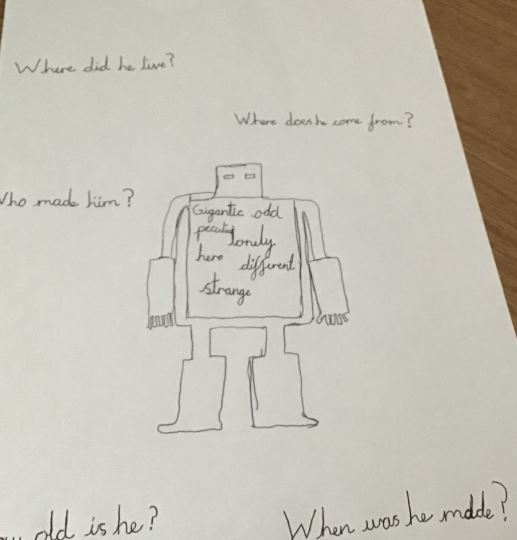 Where did he live?
Where does he come from?
Who made him?
Gigantic odd
peculiar
lonely
here different
strange
old is he?
When was he made?